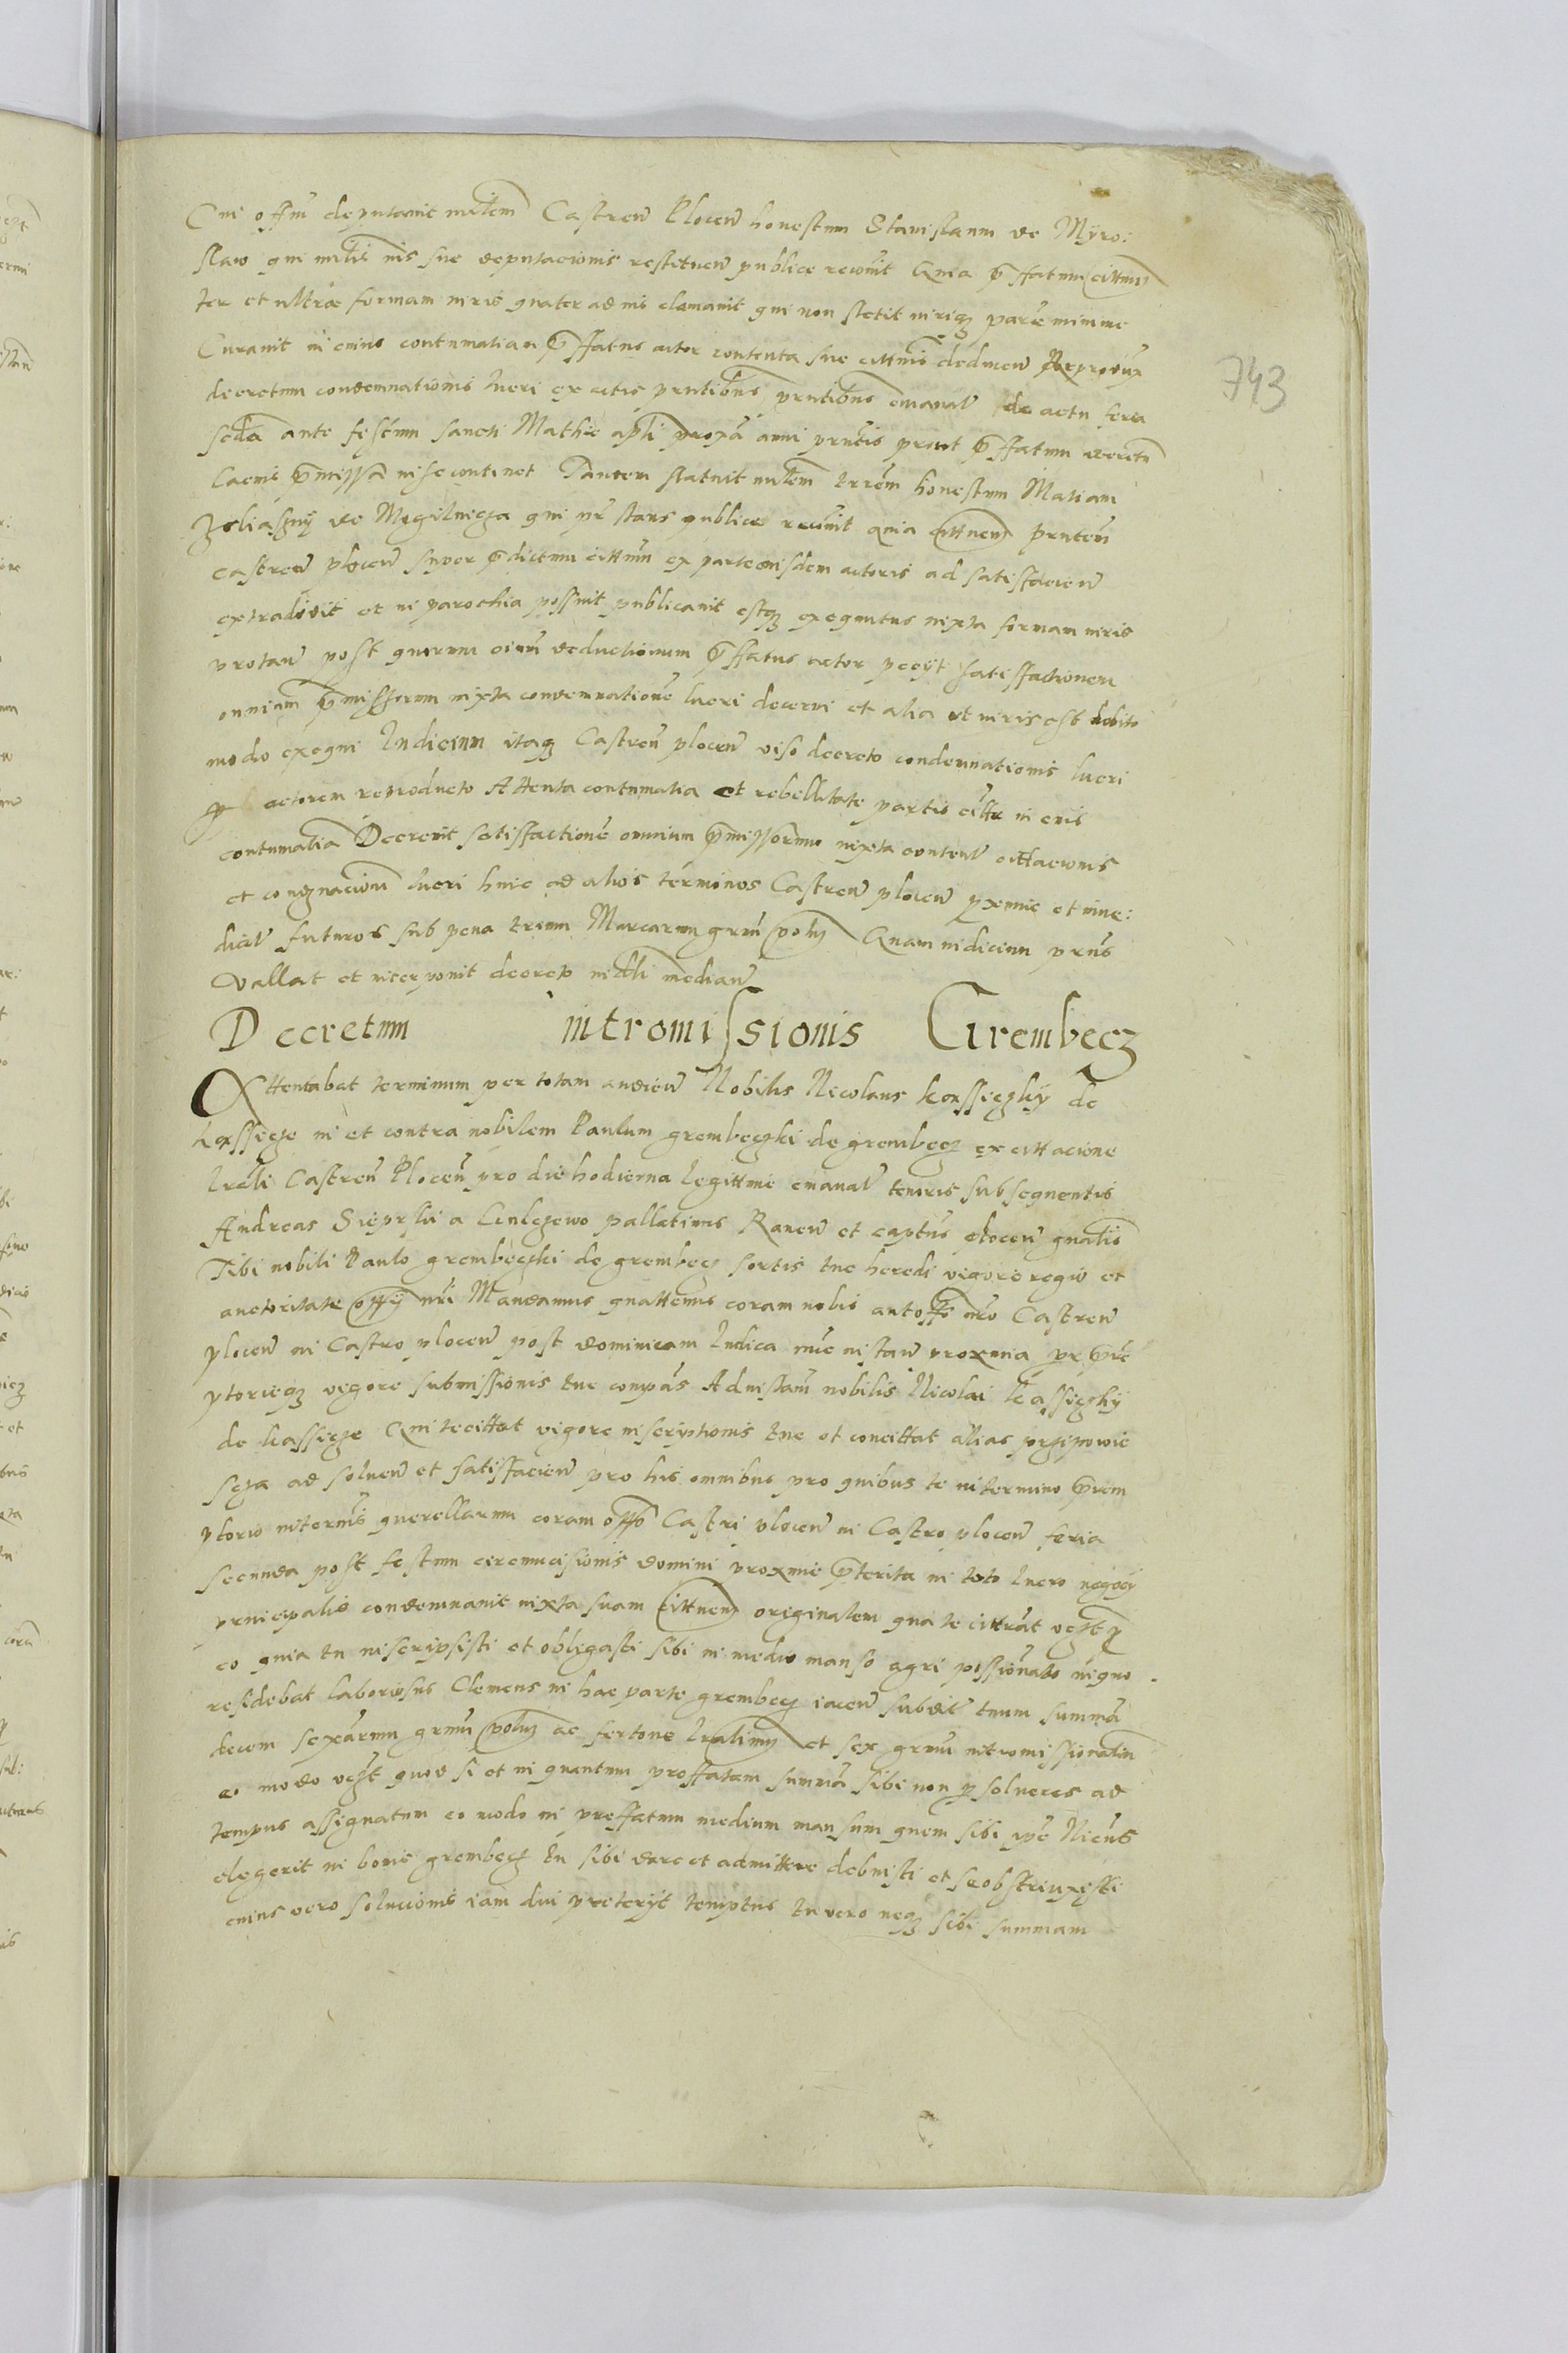 Cui offm deputavit mrlem Castren Plocen honestum Stanislaum de Myro:
slaw qui mrlis nrs sue deputacionis restituen publice recovit Quia p̄ffatum cittatum
ter et ultra formam iuris quater ad ius clamavit qui non stetit iuriq parere minime
Curavit in cuius contumatiam p̄ffatus actor contenta sue cittnis deducen Reproduxit
decretum condemnationis lucri ex actis prntibus prntibus emanat de actu feria
scda ante festum sancti Mathie apli proxa anni prntis prout p̄ffatum decretu
Lacius p̄missa in se continet Tandem statuit mrlem trrem honestum Matiam
de Mogilnicza qui ibr stans publice recovit quia cittnem prntem
castren plocen super p̄dictum cittum ex parte eiusdem actoris ad satisfacien
extradidit et in parochia possuit publicavit estq exequutus iuxta formam iuris
protan post quorum oium deductionum p̄ffatus actor petiit satisfactionem
omnium p̄missorum iuxta condemnatione lucri decerni et alia ut iuris est debito
modo exequi Iudicium itaq Castren plocen viso decreto condemnationis lucri
p actorem reproducto Attenta contumatia et rebellitate partis citte in eius
contumatia Decrevit satisfactione omnium p̄missorum iuxta content cittacionis
et condnacionu lucri hinc ad alios terminos Castren plocen pxime et imme:
diat futuros sub pena trium Marcarum grm polz Quam iudicium prns
Vallat et interponit decreto ndli median
Decretum intromissionis Grembecz
Attentabat terminum per totam audien Nobilis Nicolaus kossieczky de
kossiecze in et contra nobilem Paulum grembeczki de grembecz ex cittacione
lrali Castren Plocen pro die hodierna legittime emanat tenoris subsequentis
Andreas Sieprski a Gulczewo pallatinus Raven et captus plocen gnalis
Tibi nobili Paulo grembeczki de grembecz sortis tue heredi vigore regio et
auctoritate offij nri Mandamus quattenus coram nobis aut offo nro Castren
plocen in Castro plocen post dominicam Iudica nuc instan proxima
ptorieq vigore submissionis tue compas Ad instam nobilis Nicolai kossieczky
de kassiecze Qui te cittat vigore inscriptionis tue et concittat alias
ad solven et satisfacien pro his omnibus pro quibus te in termino p̄rem
ptorio in termis querellarum coram offo Castri plocen in Castro plocen feria
secunda post festum circumcisionis domini proxime p̄terita in toto lucro negocij
principalis condemnavit iuxta suam cittnem originalem qua te cittrat vdzt p
eo quia tu inscripsisti et obligasti sibi in medio manso agri possionato in quo
residebat laboriosus Clemens in hac parte grembecz iacen subdit tuum summa
decem sexarum grmu polz ac fertone lralimz et sex grmu intromissionalin
eo modo vdzt quod si et in quantum proffatam summa sibi non psolveres ad
tempus assignatum eo modo in preffatum medium mansum quem sibi ipse Nicus
elegerit in bonis grembecz tu sibi dare et admittere debuisti et se obstrinxisti
cuius vero solucionis iam diu preterijt temptus tu vero neq sibi summam
743